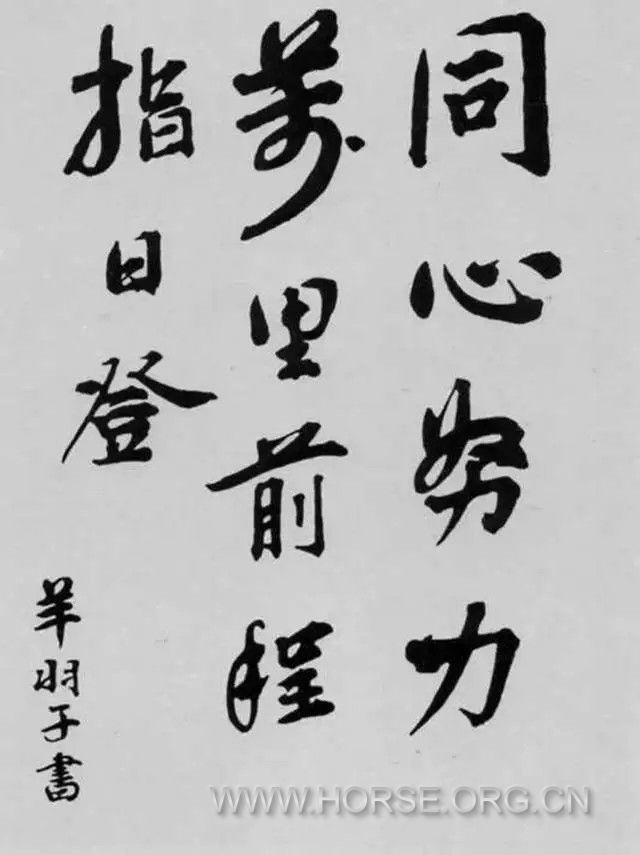 同心努力
萬里前程
指日登
羊羽子書
WWW.HORSE.ORG.CN